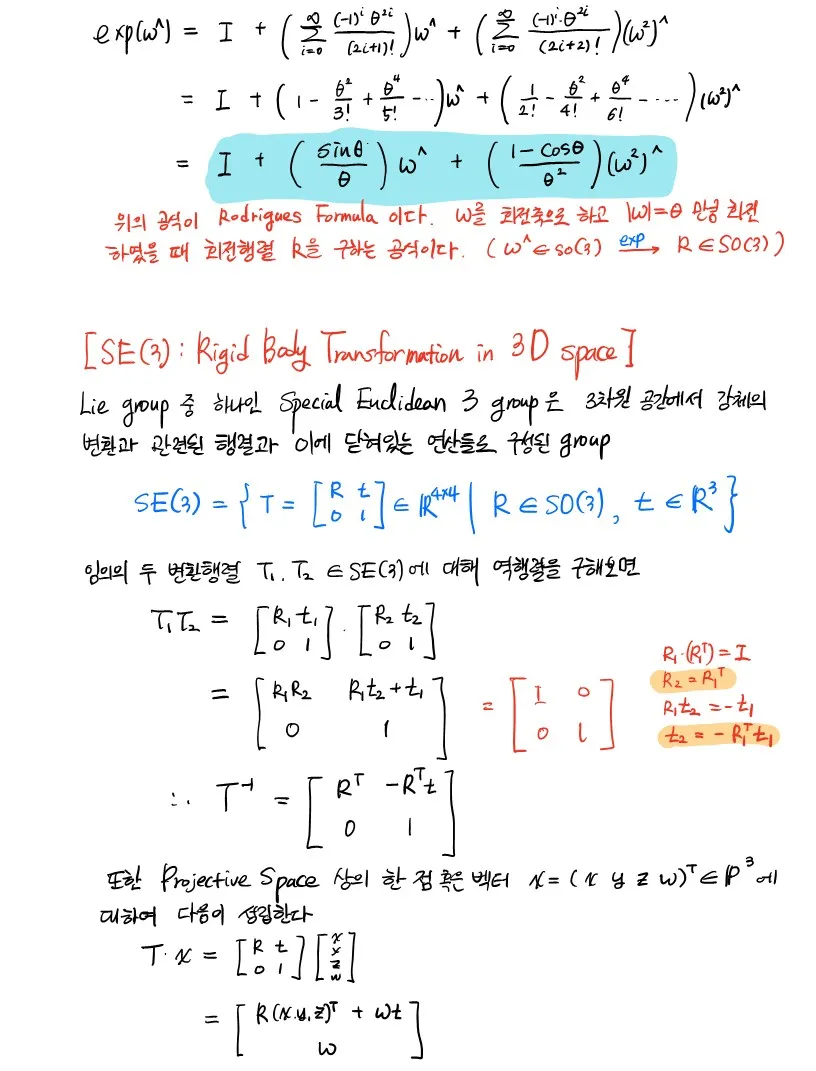 exp(ω^) = I + ( ∞∑i=0 (-1)^i θ^{2i} / (2i+1)! ) ω^ + ( ∞∑i=0 (-1)^i·θ^{2i} / (2i+2)! ) (ω²)^
= I + ( 1 - θ²/3! + θ⁴/5! - ··· ) ω^ + ( 1/2! - θ²/4! + θ⁴/6! - ···· ) (ω²)^
= I + ( sinθ/θ ) ω^ + ( 1-cosθ / θ² ) (ω²)^
위의 공식이 Rodrigues Formula 이다. ω를 회전축으로 하고 |ω|=θ 만큼 회전
하였을 때 회전행렬 R을 구하는 공식이다. ( ω^ ∈ so(3) exp→ R ∈ SO(3) )
[SE(3) : Rigid Body Transformation in 3D space]
Lie group 중 하나인 Special Euclidean 3 group은 3차원 공간에서 강체의
변환과 관련된 행렬과 이에 닫혀있는 연산들로 구성된 group
SE(3) = { T = [R t; 0 1] ∈ ℝ^{4×4} | R ∈ SO(3), t ∈ ℝ³ }
임의의 두 변환행렬 T₁, T₂ ∈ SE(3)에 대해 역행렬을 구해보면
T₁T₂ = [R₁ t₁; 0 1] · [R₂ t₂; 0 1]
= [R₁R₂ R₁t₂+t₁; 0 1] = [I 0; 0 1]
R₁·(R₁ᵀ) = I
R₂ = R₁ᵀ
R₁t₂ = -t₁
t₂ = -R₁ᵀt₁
∴ T⁻¹ = [Rᵀ -Rᵀt; 0 1]
또한 Projective Space 상의 한 점 혹은 벡터 x = (x y z w)ᵀ ∈ ℙ³에
대하여 다음이 성립한다
T·x = [R t; 0 1] [x; y; z; w]
= [R(x,y,z)ᵀ + wt; w]